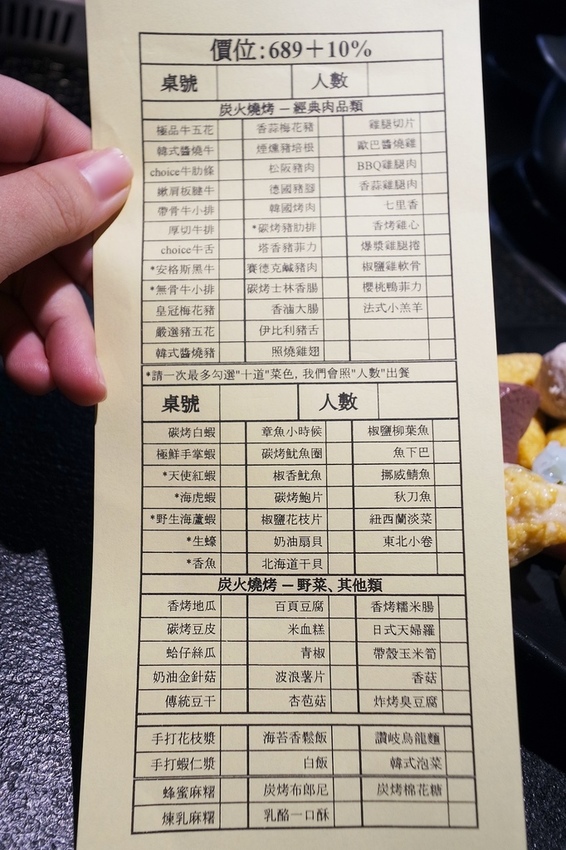 價位:689＋10%
桌號 人數
炭火燒烤 － 經典肉品類
極品牛五花 香蒜梅花豬 雞腿切片
韓式醬燒牛 煙燻豬培根 歐巴醬燒雞
choice牛肋條 松阪豬肉 BBQ雞腿肉
嫩肩板腱牛 德國豬腳 香蒜雞腿肉
帶骨牛小排 韓國烤肉 七里香
厚切牛排 *碳烤豬肋排 香烤雞心
choice牛舌 塔香豬菲力 爆漿雞腿捲
*安格斯黑牛 賽德克鹹豬肉 椒鹽雞軟骨
*無骨牛小排 碳烤士林香腸 櫻桃鴨菲力
皇冠梅花豬 香滷大腸 法式小羔羊
嚴選豬五花 伊比利豬舌
韓式醬燒豬 照燒雞翅
*請一次最多勾選"十道"菜色, 我們會照"人數"出餐
桌號 人數
碳烤白蝦 章魚小時候 椒鹽柳葉魚
極鮮手掌蝦 碳烤魷魚圈 魚下巴
*天使紅蝦 椒香魷魚 挪威鯖魚
*海虎蝦 碳烤鮑片 秋刀魚
*野生海蘆蝦 椒鹽花枝片 紐西蘭淡菜
*生蠔 奶油扇貝 東北小卷
*香魚 北海道干貝
炭火燒烤 － 野菜、其他類
香烤地瓜 百頁豆腐 香烤糯米腸
碳烤豆皮 米血糕 日式天婦羅
蛤仔絲瓜 青椒 帶殼玉米筍
奶油金針菇 波浪薯片 香菇
傳統豆干 杏苞菇 炸烤臭豆腐
手打花枝漿 海苔香鬆飯 讚岐烏龍麵
手打蝦仁漿 白飯 韓式泡菜
蜂蜜麻糬 炭烤布郎尼 炭烤棉花糖
煉乳麻糬 乳酪一口酥